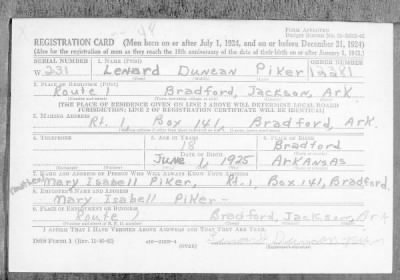 FORM APPROVED
REGISTRATION CARD (Men born on or after July 1, 1924, and on or before December 31, 1924)
(Also for the registration of men as they reach the 18th anniversary of the date of their birth on or after January 1, 1943.)
SERIAL NUMBER 1. NAME (Print) ORDER NUMBER
W 231 LENARD DUNCAN PIKER
2. PLACE OF RESIDENCE (Print)
Route 1 Bradford, Jackson, Ark
[THE PLACE OF RESIDENCE GIVEN ON LINE 2 ABOVE WILL DETERMINE LOCAL BOARD
JURISDICTION; LINE 2 OF REGISTRATION CERTIFICATE WILL BE IDENTICAL]
3. MAILING ADDRESS
Rt. 1 Box 141, Bradford, Ark.
4. TELEPHONE 5. AGE IN YEARS 6. PLACE OF BIRTH
18 Bradford
DATE OF BIRTH
June 1, 1925 ARKANSAS
7. NAME AND ADDRESS OF PERSON WHO WILL ALWAYS KNOW YOUR ADDRESS
Mary Isabell Piker, Rt. 1, Box 141, Bradford,
8. EMPLOYER'S NAME AND ADDRESS
Mary Isabell Piker -
9. PLACE OF EMPLOYMENT OR BUSINESS
Route 1 Bradford, Jackson, Ark
I AFFIRM THAT I HAVE VERIFIED ABOVE ANSWERS AND THAT THEY ARE TRUE.
DSS FORM 1 Duncan Piker